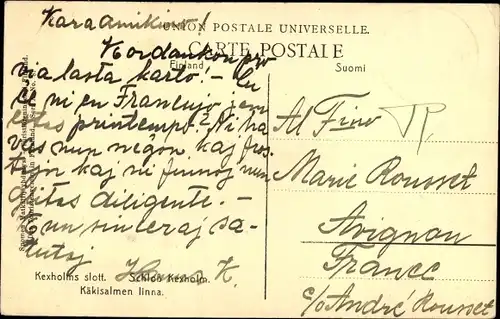 Kara amikino!
UNION POSTALE UNIVERSELLE.
CARTE POSTALE
Finland Suomi
Kordankon pro
via lasta karto! - Ĉu
ĉe vi en Francujo jam
estas printempo? Ni ha-
vas nun neĝon kaj fros-
tojn kaj ni finnoj nun
diligente. -
Kun sinceraj sa-
lutoj
K.
Al Fino
Marie Rousset
Avignon
France
c/o André Rousset
Kexholms slott. Schloß Kexholm.
Käkisalmen linna.